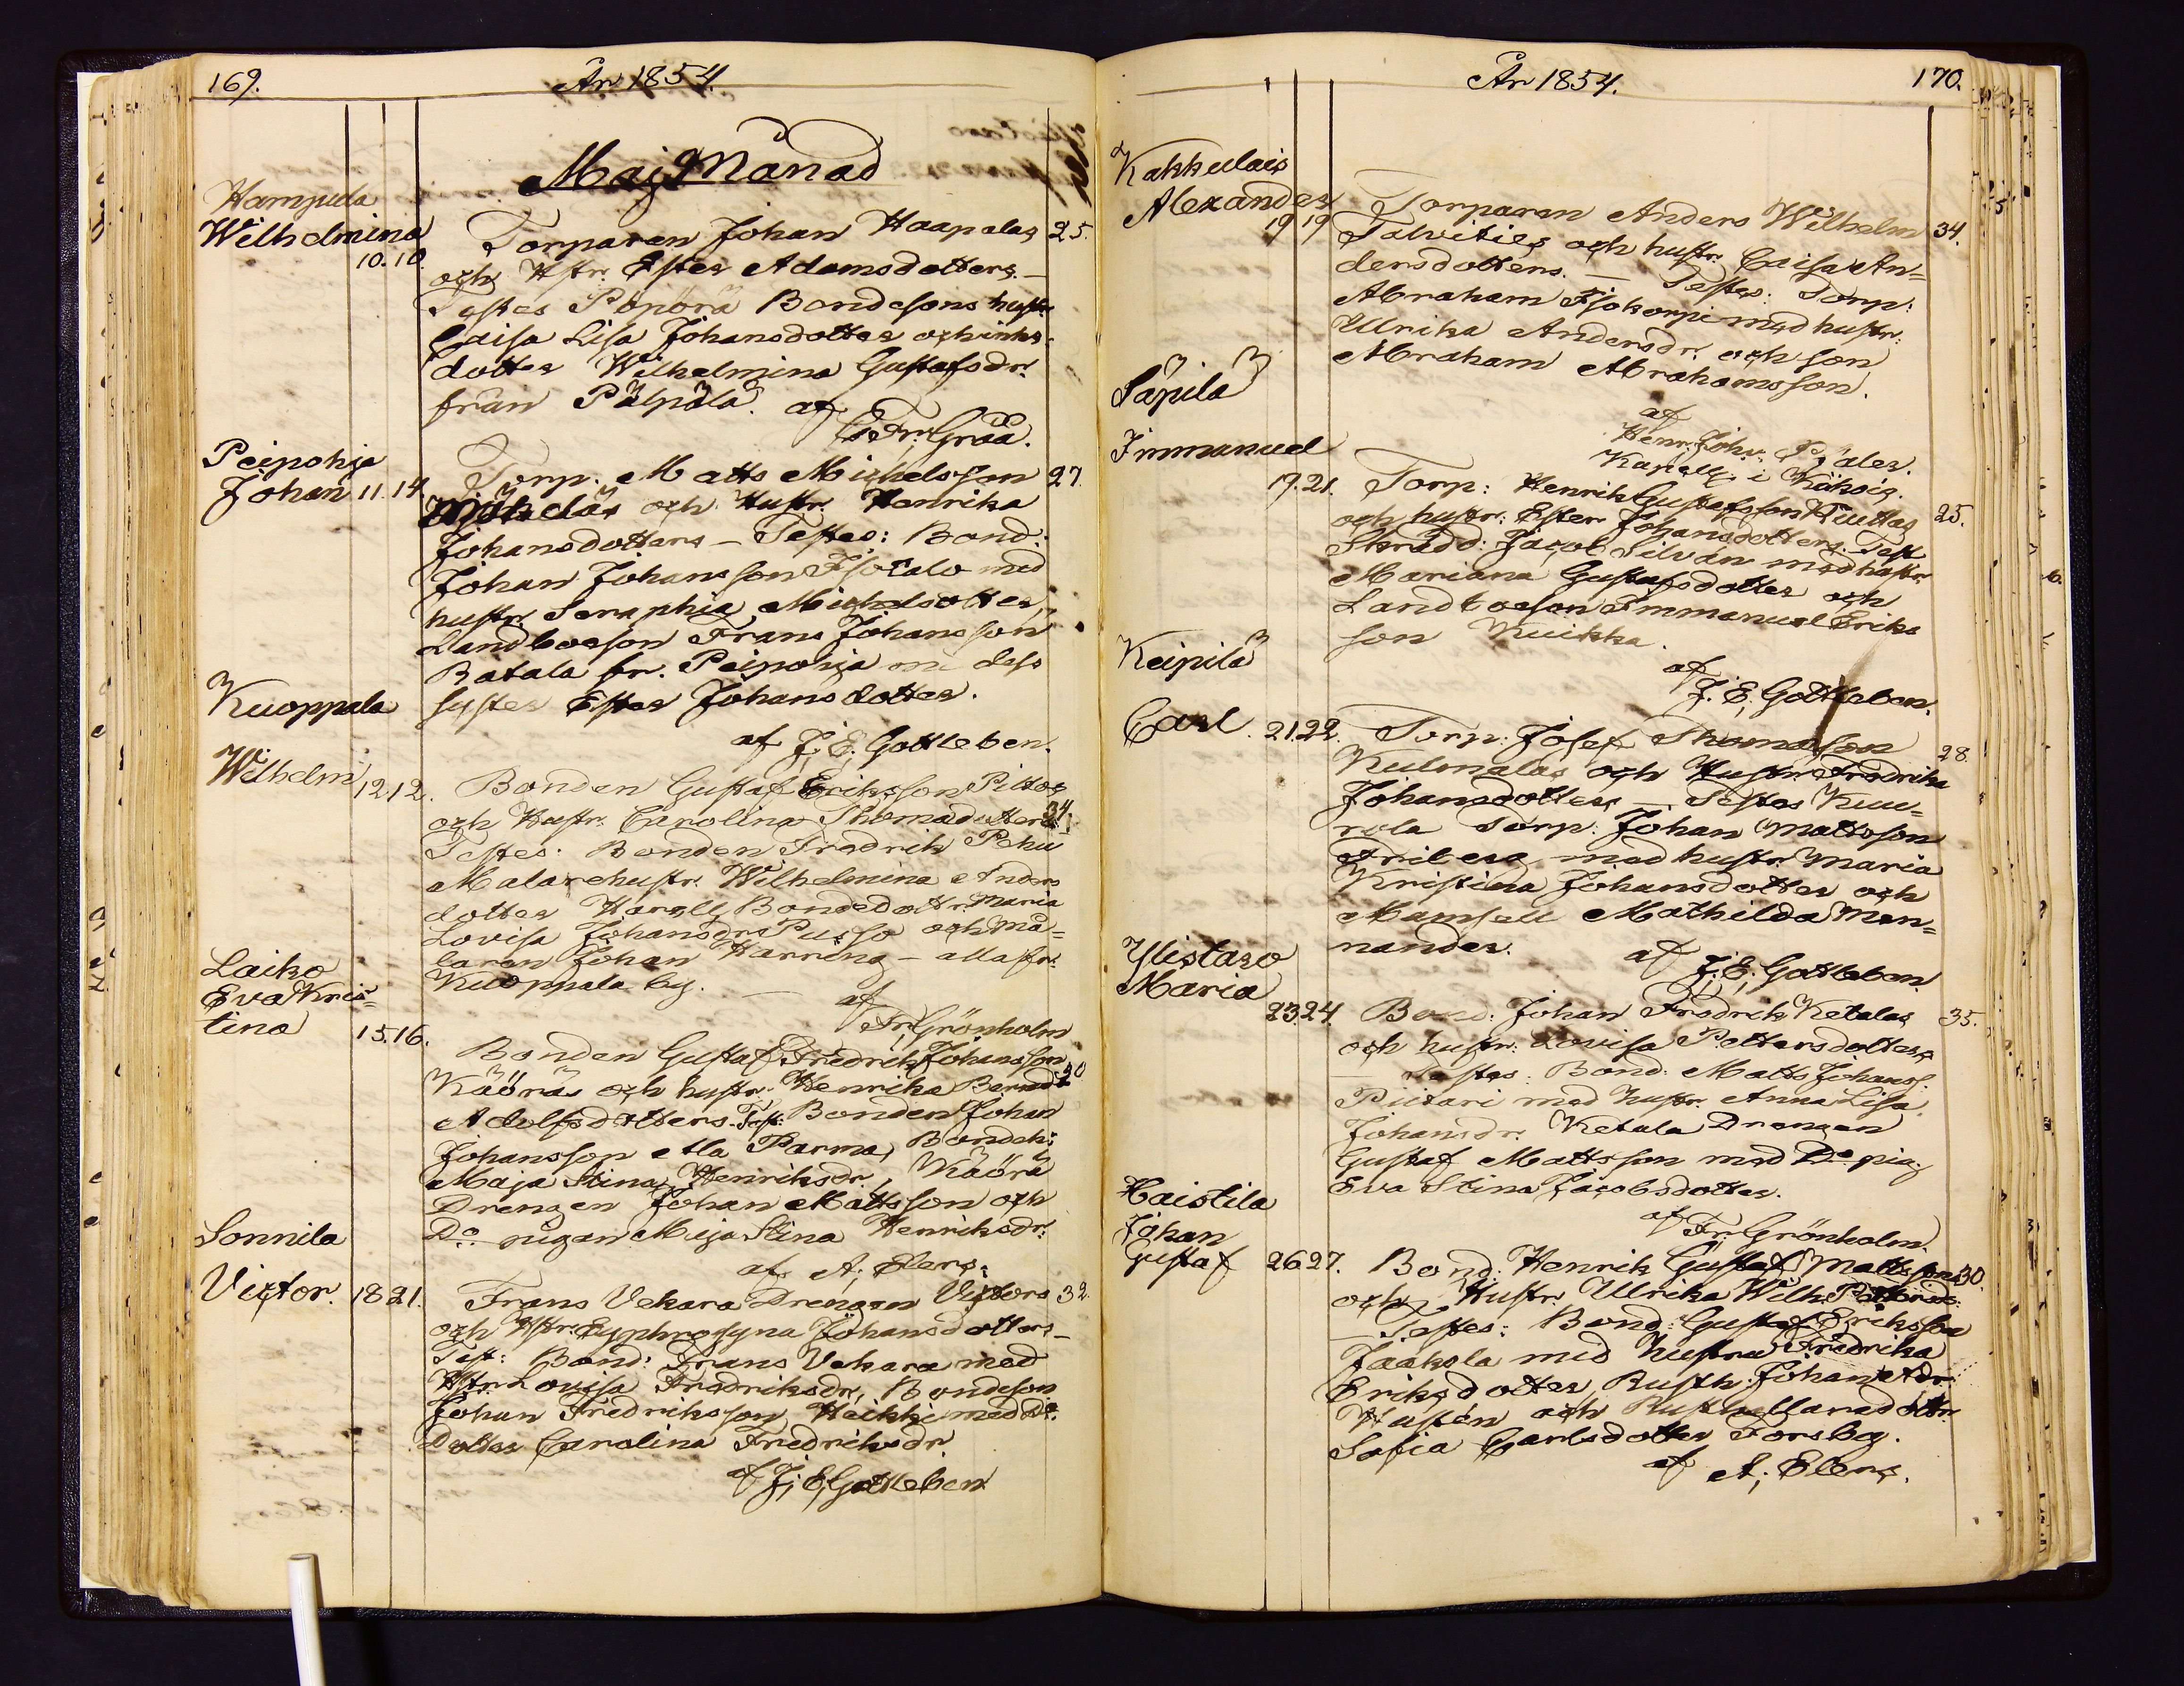 169.
År 1854.
Maj Månad
Hampula
Wilhelmina
10. 10.
Torparen Johan Haapalas
25.
och Hstr. Ester Adamsdotters. —
Testes Pöpörä Bondesons hustr.
Caisa Lisa Johansdotter och
dotter Wilhelmina Gustafsdr.
från Pälpälä. af
Fr: Gråå.
Peipohja
Johan 11. 14.
Torp. Matts Michelsson
27.
Mäkeläs och Hustr. Henrika
Johansdotters — Testes: Bond.
Johan Johansson Isotalo med
hustr. Seraphia Michelsdotter,
Landboeson Frans Johansson
Ratala fr. Peipohja m dess
syster Ester Johansdotter.
af J; E; Gottleben.
Kuoppala
Wilhelm 12. 12.
Bonden Gustaf Eriksson Pittos
och Hustr. Carolina Thomadotters
34.
Testes: Bonden Fredrik Pehu
Malarehustr. Wilhelmina Anders
dotter Bondedottr. Maria
Lovisa Johansdr Pusso och Må=
laren Johan Harring — alla fr.
Kuoppala by.
af
Fr; Grönholm
Laiko
Eva Kris=
tina
15. 16.
Bonden Gustaf Fredrik Johansson
Kääräs och hustr. Henrika Bernd
20
Adolfsdotters. Test: Bonden Johan
Johansson Alla Parma, Bondeh:
Maja Stina Henriksdr, Käörä
Drengen Johan Mattsson och
Do. pigan Maja Stina Henriksdr.
af A; Elers.
Sonnila
Victor. 18 21.
Frans Vekara Drengen Victors
32.
och Hstr. Euphrosyna Johansdotters —
Test: Bond: Frans Vekara med
Hstr Lovisa Fredriksdr, Bondeson
Johan Fredriksson Heikki med Do.
Dotter Carolina Fredriksdr
af J; E; Gottleben
År 1854.
170.
Kakkulais
Alexander
19 19
Torparen Anders Wilhelm
34.
Talvities och hustr. Caisa An=
dersdotters. — Testes: Torp:
Abraham Isokorpi med hustr:
Ulrika Andersdr. och son
Abraham Abrahamsson.
af
Henr. Joh.
Kapell. i Kiikois.
Säpilä
Immanuel
19. 21.
Torp: Henrik Gustafsson Tuttas
25.
och hustr: Ester Johansdotters. Test
Skrädd: Jacob Silvän med hustr
Mariana Gustafsdotter och
Landboeson Immanuel Eriks
son Kuikka.
af
J. E; Gottleben.
Keipilä
Carl. 21. 22.
Torp: Josef Thomasson
28.
Kulmalas och Hustr. Fredrika
Johansdotters — Testes Kuu=
rola Torp: Johan Mattsson
Friberg med hustr. Maria
Kristina Johansdotter och
Mamsell Mathilda Mon=
nander.
af J; E; Gottleben.
Ylistaro
Maria
23. 24.
Bond: Johan Fredrik Ketalas
35.
och hustr: Lovisa Pettersdotters
— Testes: Bond: Matts Johanss.
Piitari med hustr. Anna Lisa
Johansdr. Ketala Drengen
Gustaf Mattsson med Do pig.
Eva Stina Jacobsdotter.
af Fr: Grönholm.
Haistila
Johan
Gustaf 26 27.
Bond: Henrik Gustaf Mattssons
30.
och Hustr. Ulrika Wilh.
— Testes: Bond: Gustaf Eriksson
Jaakola med hustru Fredrika
Eriksdotter Rusth. Johan Adr.
Hustén och Rusthållaredottr
Sofia Carlsdotter Forsbg.
af A; Elers.